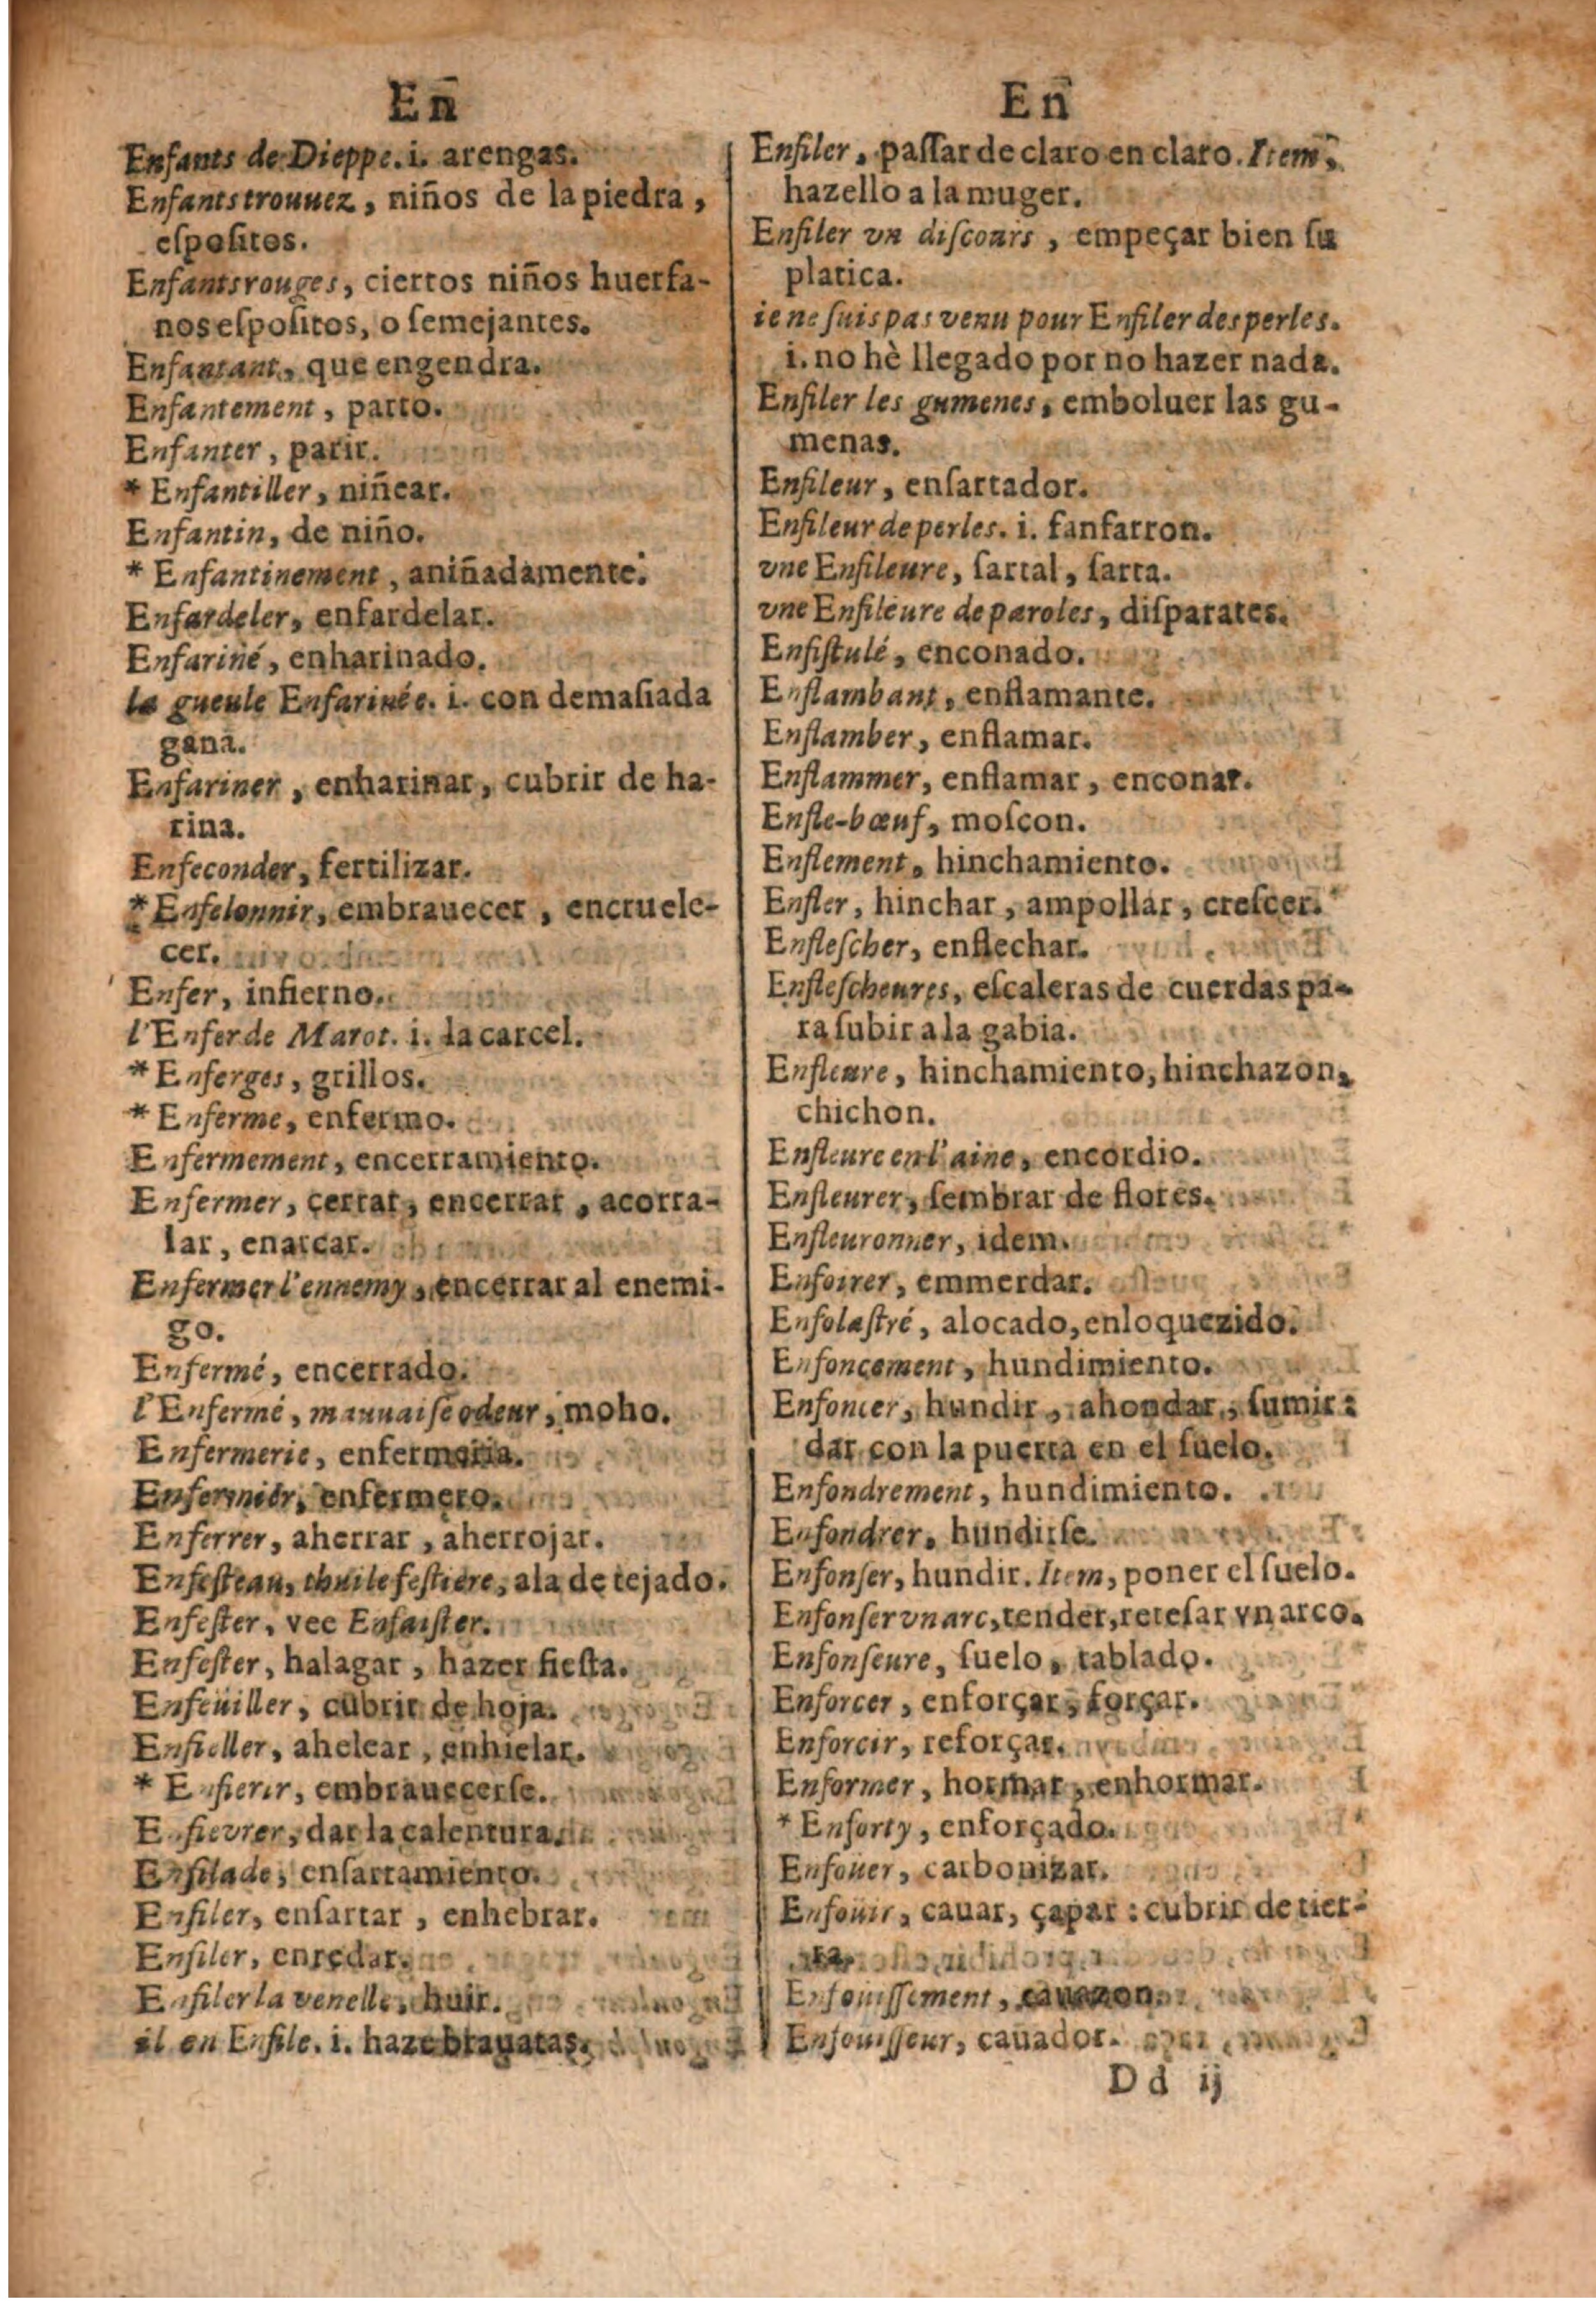 En̄
Enfants de Dieppe. i. arengas.
Enfants trouuez, niños de la piedra,
espositos.
Enfants rouges, ciertos niños huerfa-
nos espositos, o semejantes.
Enfantant, que engendra.
Enfantement, parto.
Enfanter, parir.
* Enfantiller, niñear.
Enfantin, de niño.
* Enfantinement, aniñadamente.
Enfardeler, enfardelar.
Enfariné, enharinado.
la gueule Enfarinée. i. con demasiada
gana.
Enfariner, enharinar, cubrir de ha-
rina.
Enfeconder, fertilizar.
* Enfelonnir, embrauecer, encruele-
cer.
Enfer, infierno.
l'Enfer de Marot. i. la carcel.
* Enferges, grillos.
* Enferme, enfermo.
Enfermement, encerramiento.
Enfermer, çerrar, encerrar, acorra-
lar, enarcar.
Enfermer l'ennemy, encerrar al enemi-
go.
Enfermé, encerrado.
l'Enfermé, mauuaise odeur, moho.
Enfermerie, enfermeria.
Enfermiér, enfermero.
Enferrer, aherrar, aherrojar.
Enfesteau, thuile festiere, ala de tejado.
Enfester, vee Enfaister.
Enfester, halagar, hazer fiesta.
Enfeüiller, cubrir de hoja.
Enfieller, ahelear, enhielar.
* Enfierir, embrauecerse.
Enfievrer, dar la calentura.
Enfilade, ensartamiento.
Enfiler, ensartar, enhebrar.
Enfiler, enredar.
Enfiler la venelle, huir.
il en Enfile. i. haze brauatas.
En̄
Enfiler, passar de claro en claro. Item,
hazello a la muger.
Enfiler vn discours, empeçar bien su
platica.
ie ne suis pas venu pour Enfiler des perles.
i. no hè llegado por no hazer nada.
Enfiler les gumenes, emboluer las gu-
menas.
Enfileur, ensartador.
Enfileur de perles. i. fanfarron.
vne Enfileure, sartal, sarta.
vne Enfileure de paroles, disparates.
Enfistulé, enconado.
Enflambant, enflamante.
Enflamber, enflamar.
Enflammer, enflamar, enconar.
Enfle-bœuf, moscon.
Enflement, hinchamiento.
Enfler, hinchar, ampollar, crescer.
Enflescher, enflechar.
Enflescheures, escaleras de cuerdas pa-
ra subir a la gabia.
Enfleure, hinchamiento, hinchazon,
chichon.
Enfleure en l'aine, encordio.
Enfleurer, sembrar de flores.
Enfleuronner, idem.
Enfoirer, emmerdar.
Enfolastré, alocado, enloquezido.
Enfoncement, hundimiento.
Enfoncer, hundir, ahondar, sumir:
dar con la puerta en el suelo.
Enfondrement, hundimiento.
Enfondrer, hundirse.
Enfonser, hundir. Item, poner el suelo.
Enfonser vn arc, tender, retesar vn arco.
Enfonseure, suelo, tablado.
Enforcer, enforçar, forçar.
Enforcir, reforçar.
Enformer, hormar, enhormar.
* Enforty, enforçado.
Enfoüer, carbonizar.
Enfoüir, cauar, çapar: cubrir de tier-
ra.
Enfouissement, cauazon.
Enfouisseur, cauador.
Dd ij